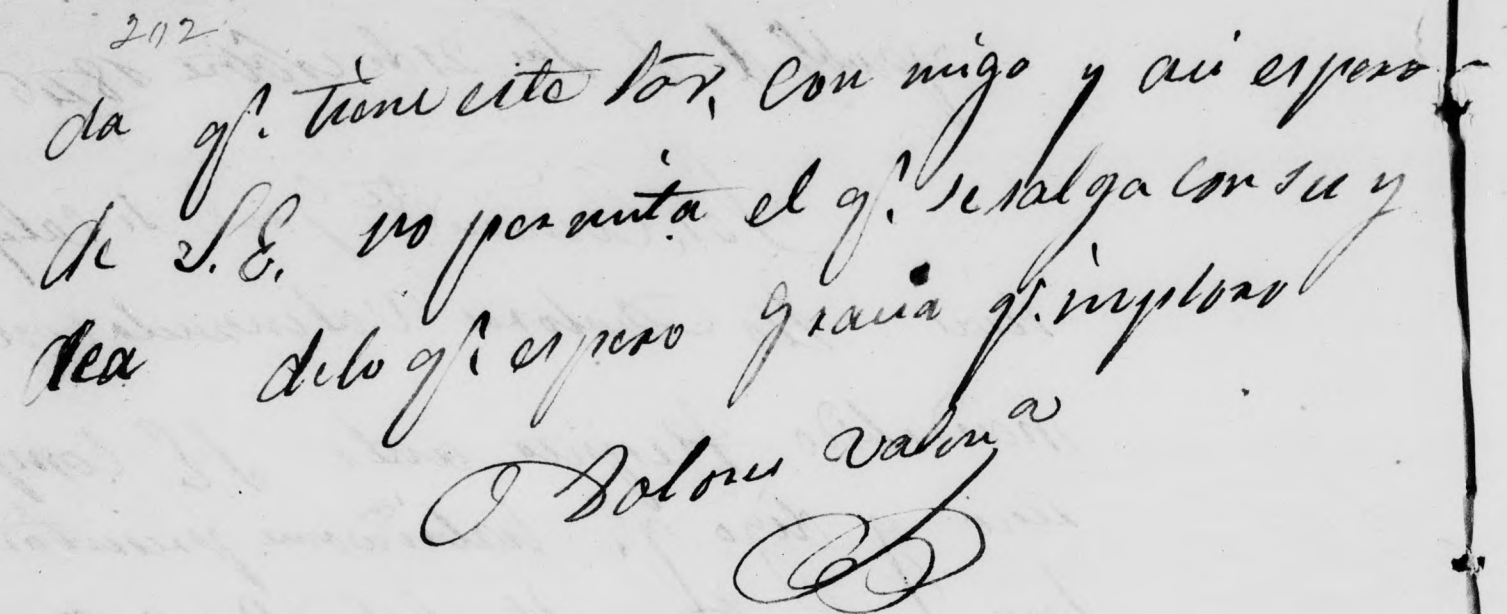 202
da qe. tiene este Sor. con migo y asi espero
de S.E. no permita el qe. se salga con su y
dea de lo qe. espero gracia qe. imploro
Dolores Valena